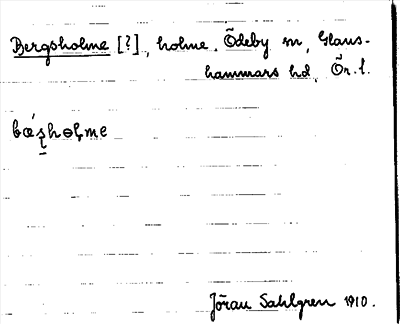 Bergsholme [?], holme. Ödeby sn, Glans-
hammars hd, Ör. l.
Jöran Sahlgren 1910.